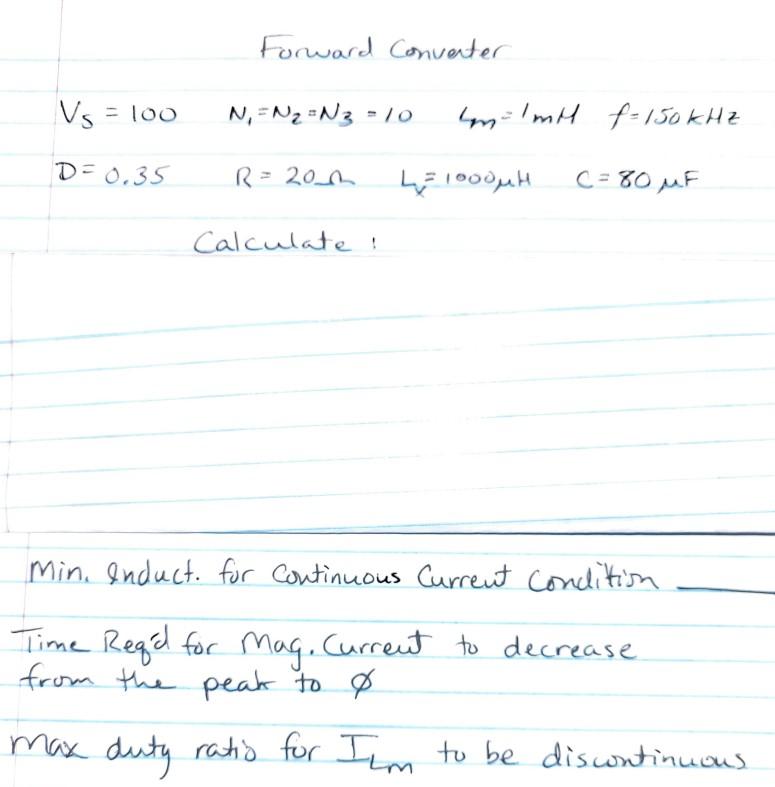 Forward Converter
Vs = 100 N₁=N₂=N3 = 10 Lm=1mH f=150kHz
D= 0.35 R= 20Ω Lx=1000μH C= 80 μF
Calculate :
Min. Induct. for Continuous Current Condition
Time Req'd for Mag. Current to decrease
from the peak to Ø
Max duty ratio for ILm to be discontinuous